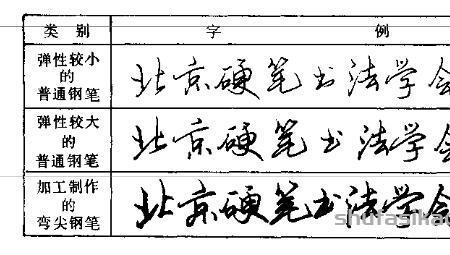 类别 字例
弹性较小
的
普通钢笔
北京硬笔书法学会
弹性较大
的
普通钢笔
北京硬笔书法学会
加工制作
的
弯尖钢笔
北京硬笔书法学会